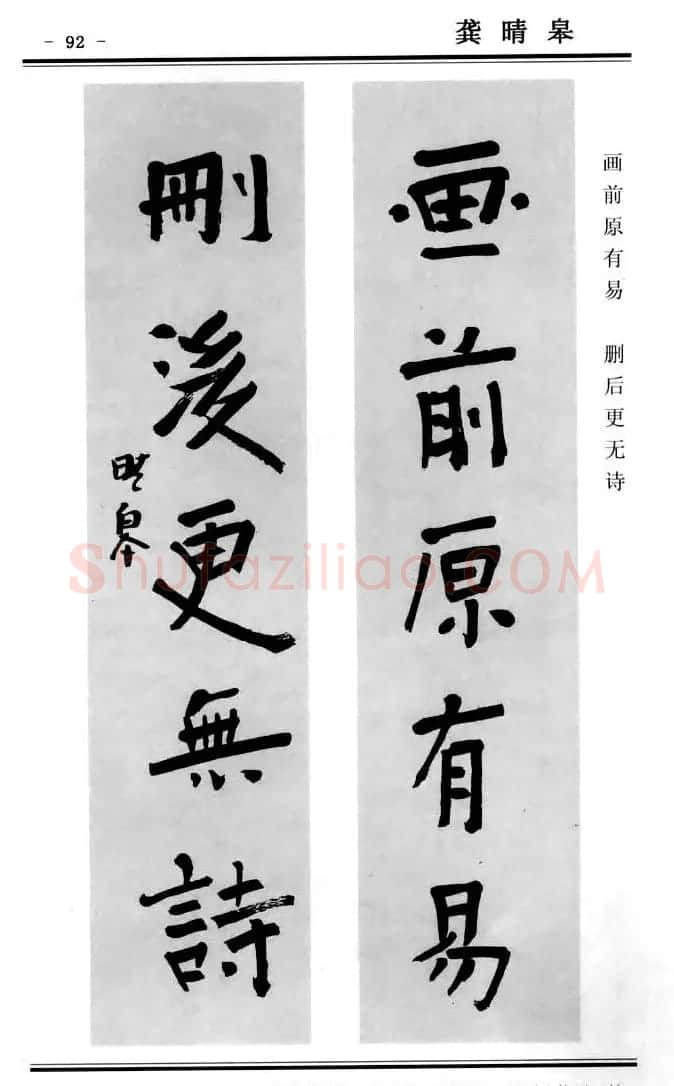 - 92 -
龚晴皋
画前原有易 删后更无诗
画前原有易
刪後更無詩
晴皋
Shufaziliao.COM